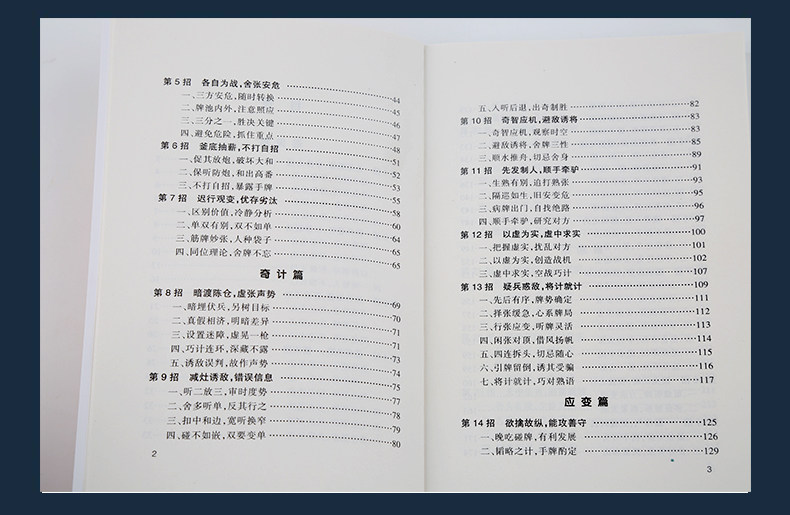 第5招 各自为战,舍张安危 44
一、三方安危,随时转换 44
二、牌池内外,注意照应 45
三、三分之一,胜决关键 46
四、避免危险,抓住重点 47
第6招 釜底抽薪,不打自招 48
一、促其放炮,破坏大和 51
二、保听防炮,和出高番 52
三、不打自招,暴露手牌 53
第7招 迟行观变,优存劣汰 55
一、区别价值,冷静分析 58
二、单双有别,双不如单 60
三、筋牌妙张,人种袋子 64
四、同位理论,舍牌不忘 65
奇计篇
第8招 暗渡陈仓,虚张声势 69
一、暗埋伏兵,另树目标 70
二、真假相济,明暗差异 71
三、设置迷障,虚晃一枪 71
四、巧计连环,深藏不露 73
五、诱敌误判,故作声势 74
第9招 减灶诱敌,错误信息 75
一、听二放三,审时度势 77
二、舍多听单,反其行之 78
三、扣中和边,宽听换窄 79
四、碰不如嵌,双要变单 80
2
五、人听后退,出奇制胜 82
第10招 奇智应机,避敌诱将 83
一、奇智应机,观察时空 83
二、避敌诱将,舍牌三性 85
三、顺水推舟,切忌舍身 89
第11招 先发制人,顺手牵驴 91
一、生熟有别,追打熟张 93
二、隔巡如生,旧安变危 94
三、病牌出门,自找绝路 96
四、顺手牵驴,研究对方 97
第12招 以虚为实,虚中求实 100
一、把握虚实,扰乱对方 101
二、以虚为实,创造战机 102
三、虚中求实,空战巧计 107
第13招 疑兵惑敌,将计就计 109
一、先后有序,牌势确定 111
二、择张缓急,心系牌局 111
三、行张应变,听牌灵活 113
四、闲张对顶,借风扬帆 114
五、四连拆头,切忌随心 115
六、引牌留倒,诱其受骗 116
七、将计就计,巧对熟语 117
应变篇
第14招 欲擒故纵,能攻善守 125
一、晚吃碰牌,有利发展 126
二、韬略之计,手牌酌定 129
3